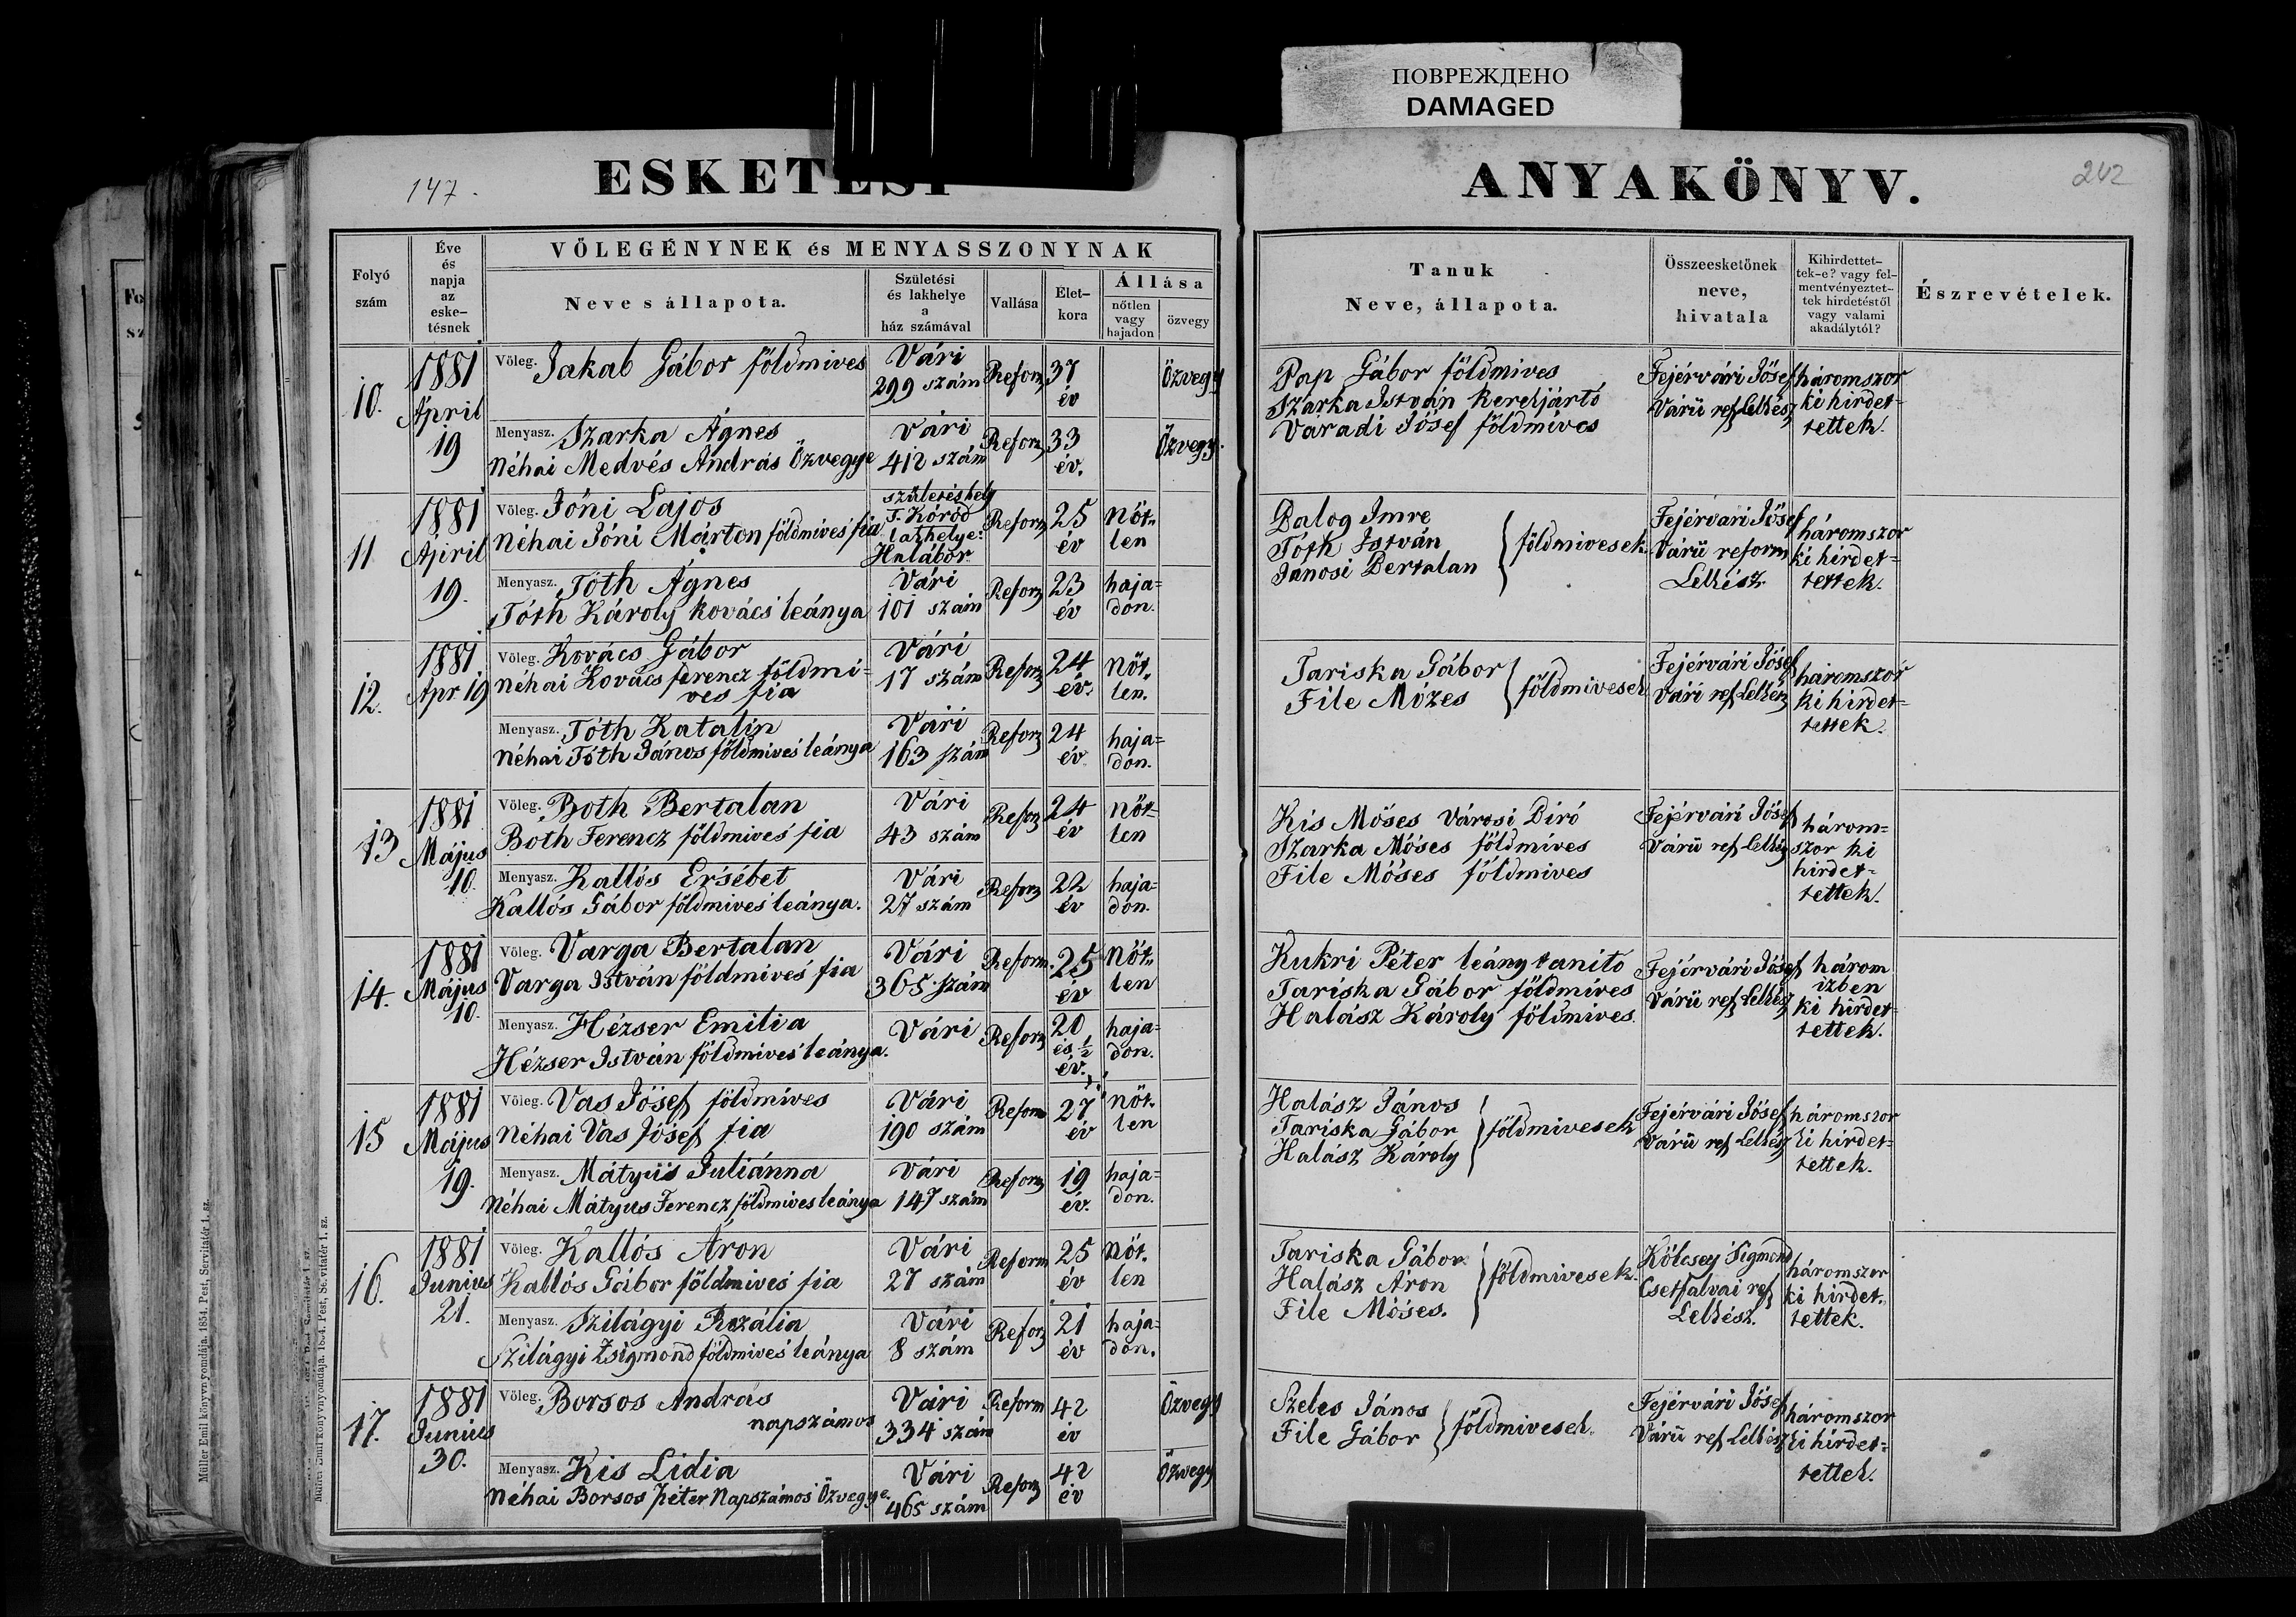 ПОВРЕЖДЕНО
DAMAGED
147.
ESKETÉSI
ANYAKÖNYV.
242
Folyó
szám
Éve
és
napja
az
eske-
tésnek
VŐLEGÉNYNEK és MENYASSZONYNAK
Neve s állapota.
Születési
és lakhelye
a
ház számával
Vallása
Élet-
kora
Állása
nőtlen
vagy
hajadon
özvegy
Tanuk
Neve, állapota.
Összeesketőnek
neve,
hivatala
Kihirdettet-
tek-e? vagy fel-
mentvényeztet-
tek hirdetéstől
vagy valami
akadálytól?
Észrevételek.
10.
1881
April
19
Vőleg. Jakab Gábor földmives
Vári
299 szám
Reform
37
év
Özvegy
Menyasz. Szarka Ágnes
Néhai Medvés András Özvegye
Vári
412 szám
Reform
33
év.
Özvegy.
Pap Gábor földmives
Szarka István kerékjártó
Váradi Jósef földmives
Fejérvári Jósef
Várii ref Lelkész
háromszor
ki hirdet-
tettek.
11
1881
April
19.
Vőleg. Jóni Lajos
Néhai Jóni Márton földmives fia
születéshely
T. Kóród
lakhelye
Halábor
Reform
25
év
nőt-
len
Menyasz. Tóth Ágnes
Tóth Károly kovács leánya
Vári
101 szám
Reform
23
év
haja-
don.
Balog Imre
Tóth István
Jánosi Bertalan
földmivesek
Fejérvári Jósef
Várii reform
Lelkész
háromszor
ki hirdet-
tettek.
12.
1881
Apr 19
Vőleg. Kovács Gábor
Néhai Kovács ferencz földmi-
ves fia
Vári
17 szám
Reform
24
év.
nőt-
len.
Menyasz. Tóth Katalin
Néhai Tóth János földmives leánya
Vári
163 szám
Reform
24
év
haja-
don.
Tariska Gábor
File Mózes
földmivesek
Fejérvári Jósef
Vári ref Lelkész
háromszor
ki hirdet-
tettek.
13
1881
Május
10.
Vőleg. Both Bertalan
Both Ferencz földmives fia
Vári
43 szám
Reform
24
év
nőt-
len
Menyasz. Kallós Ersébet
Kallós Gábor földmives leánya.
Vári
27 szám
Reform
22
év
haja-
don.
Kis Móses Városi Biró
Szarka Móses földmives
File Móses földmives
Fejérvári Jósef
Várii ref Lelkész
három-
szor ki
hirdet-
tettek.
14.
1881
Május
10.
Vőleg. Varga Bertalan
Varga István földmives fia
Vári
365 szám
Reform.
25
év
nőt-
len
Menyasz. Hézser Emilia
Hézser István földmives leánya.
Vári
Reform
20
és ½
év.
haja-
don.
Kukri Péter leánytanitó
Tariska Gábor földmives
Halász Károly földmives.
Fejérvári Jósef
Várii ref Lelkész
három
izben
ki hirdet-
tettek.
15
1881
Május
19.
Vőleg. Vas Jósef földmives
Néhai Vas Jósef fia
Vári
190 szám
Reform
27
év
nőt-
len
Menyasz. Mátyus Juliánna
Néhai Mátyus Ferencz földmives leánya
Vári
147 szám
Reform
19
év.
haja-
don.
Halász János
Tariska Gábor
Halász Károly
földmivesek
Fejérvári Jósef
Várii ref Lelkész
háromszor
ki hirdet-
tettek.
16.
1881
Junius
21.
Vőleg. Kallós Áron
Kallós Gábor földmives fia
Vári
27 szám
Reform
25
év
Nőt-
len
Menyasz. Szilágyi Rozália
Szilágyi Zsigmond földmives leánya
Vári
8 szám
Reform
21
év
haja-
don.
Tariska Gábor
Halász Áron
File Móses.
földmivesek.
Kölcsey Sigmond
Csetfalvai ref
Lelkész.
háromszor
ki hirdet-
tettek.
17.
1881
Junius
30.
Vőleg. Borsos András
napszámos
Vári
334 szám
Reform
42
év
Özvegy
Menyasz. Kis Lidia
Néhai Borsos Péter Napszámos Özvegye.
Vári
465 szám
Reform
42
év
Özvegy
Szeles János
File Gábor
földmivesek.
Fejérvári Jósef
Várii ref Lelkész
háromszor
ki hirdet-
tettek.
Müller Emil könyvnyomdája. 1854. Pest, Servitatér 1. sz.
Müller Emil könyvnyomdája. 1854. Pest, Servitatér 1. sz.